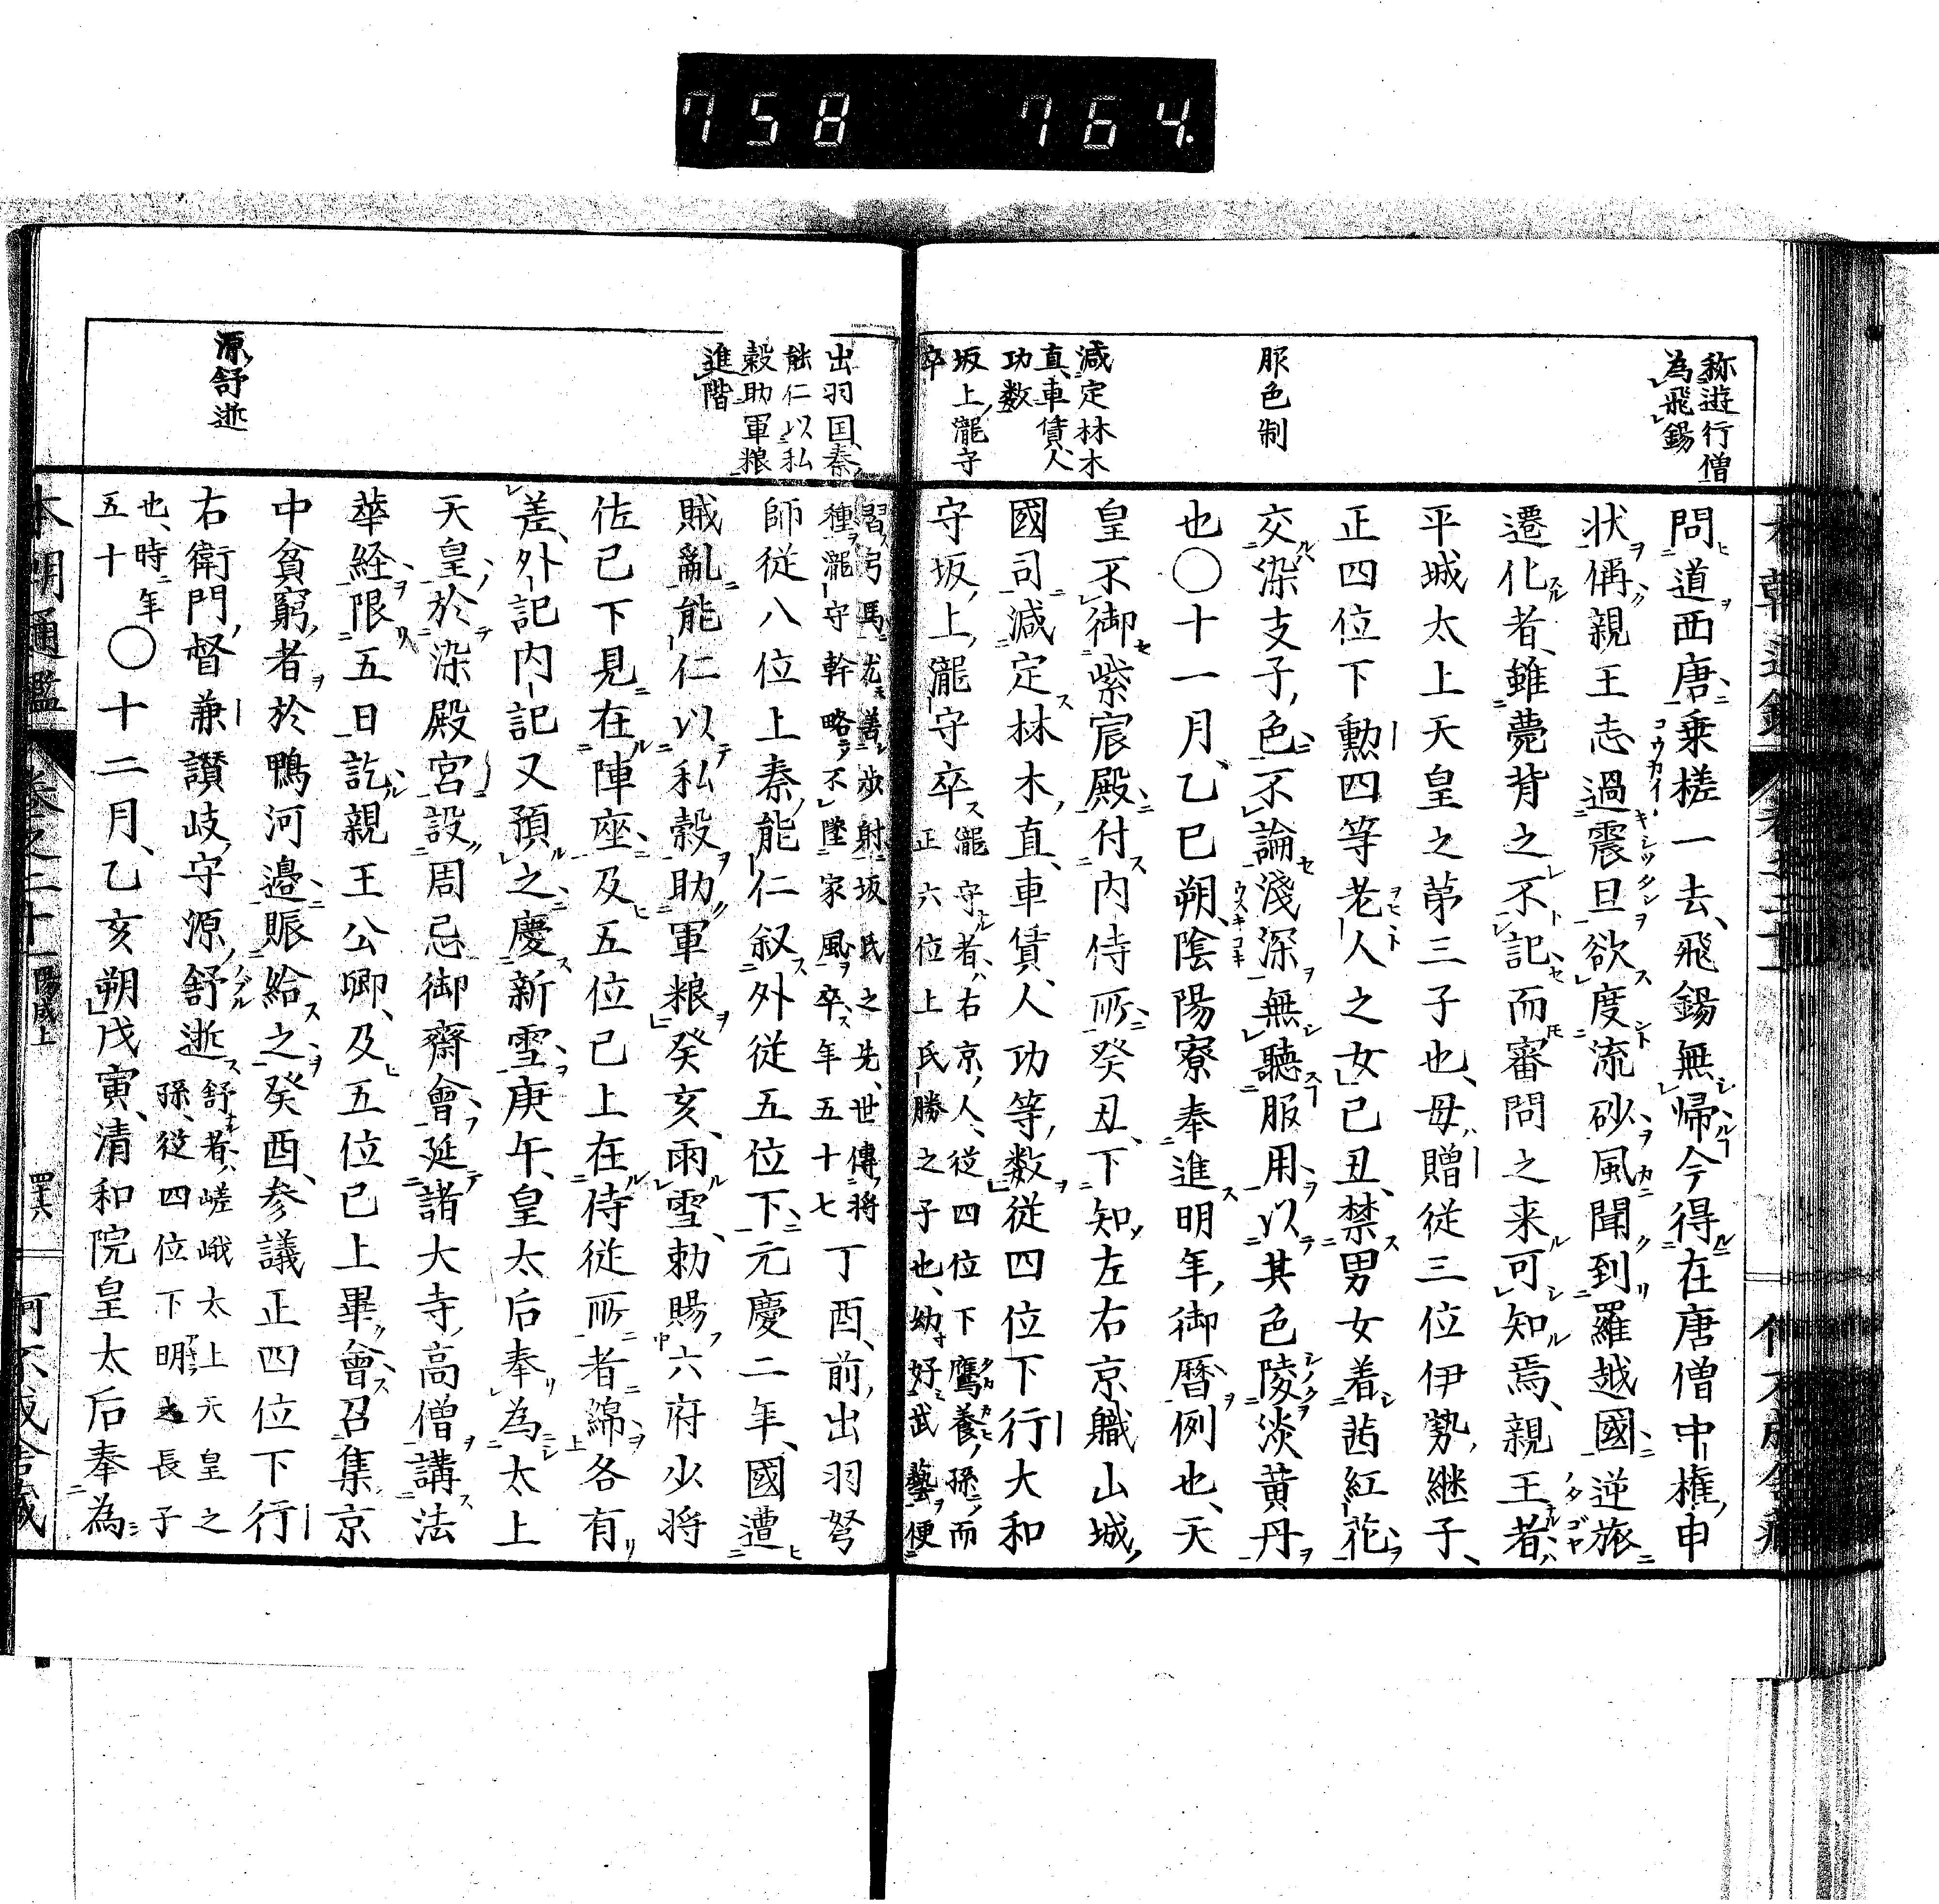 758 764.
称遊行僧
為飛錫
服色制
減定林木
直車賃人
功数
坂上瀧守
卒
問道西唐乗槎一去飛錫無帰今得在唐僧中権申
状偁親王志過震旦欲度流砂風聞到羅越國逆旅
遷化者雖薨背之不記而審問之来可知焉親王者
平城太上天皇之第三子也母贈従三位伊勢継子
正四位下勲四等老人之女己丑禁男女着茜紅花
交染支子色不論淺深無聽服用以其色陵淡黄丹
也〇十一月乙巳朔陰陽寮奉進明年御暦例也天
皇不御紫宸殿付内侍所癸丑下知左右京職山城
國司減定林木直車賃人功等数従四位下行大和
守坂上瀧守卒瀧守者右京人従四位下鷹養孫而
正六位上氏勝之子也幼好武藝便
出羽国秦
能仁以私
穀助軍粮
進階
源舒逝
習弓馬尤善歩射坂氏之先世傳将
種瀧守幹略不墜家風卒年五十七丁酉前出羽弩
師従八位上秦能仁叙外従五位下元慶二年國遭
賊亂能仁以私穀助軍粮癸亥雨雪勅賜六府少将
佐已下見在陣座及五位已上在侍従所者綿各有
差外記内記又預之慶新雪庚午皇太后奉為太上
天皇於染殿宮設周忌御齋會延諸大寺高僧講法
華経限五日訖親王公卿及五位已上畢會召集京
中貧窮者於鴨河邉賑給之癸酉参議正四位下行
右衛門督兼讃岐守源舒逝舒者嵯峨太上天皇之
孫従四位下明之長子
也時年
五十〇十二月乙亥朔戊寅清和院皇太后奉為
本朝通鑑 巻之二十一 陽成上